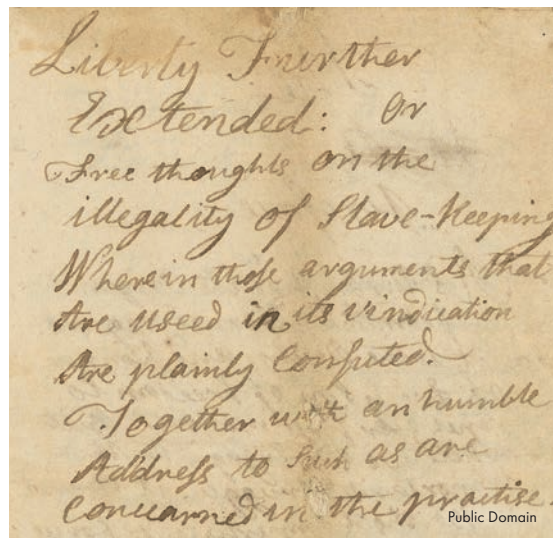 Liberty Further
Extended: Or
Free thoughts on the
illegality of Slave-keeping
Wherein those arguments that
Are useed in its vindication
Are plainly Confuted.
Together with an humble
Address to Such as are
Concearned in the practise.
Public Domain